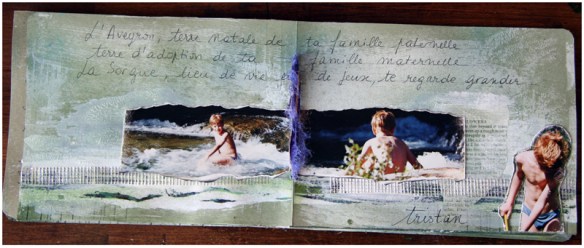 L'Aveyron, terre natale de ta famille paternelle
terre d'adoption de ta famille maternelle
La Sorgue, lieu de vie et de jeux, te regarde grandir
tristan